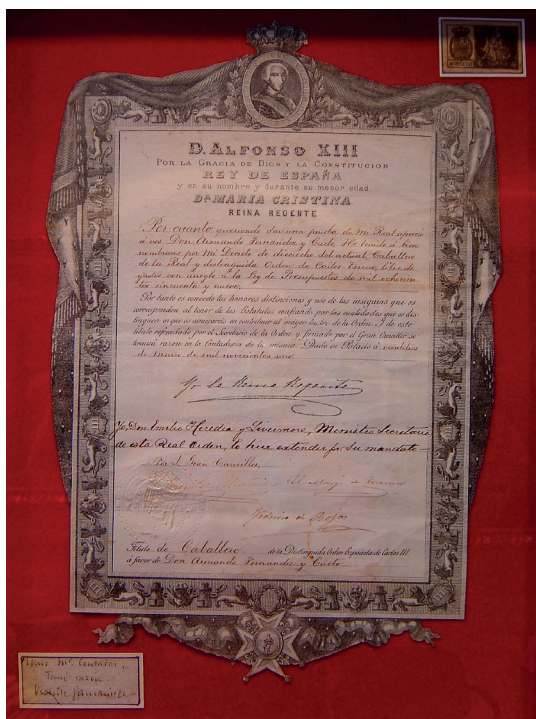 D. ALFONSO XIII
POR LA GRACIA DE DIOS Y LA CONSTITUCION
REY DE ESPAÑA
y en su nombre y durante su menor edad
Dª MARIA CRISTINA
REINA REGENTE
Por cuanto queriendo dar una prueba de Mi Real aprecio
á vos Don Armando Fernandez y Cueto He tenido á bien
nombraros por Mi Decreto de dieciocho del actual Caballero
de la Real y distinguida Orden de Carlos Tercero, libre de
gastos con arreglo á la Ley de Presupuestos de mil ochocien
tos cincuenta y nueve.
Por tanto os concedo los honores distinciones y uso de las insignias que os
corresponden al tenor de los Estatutos confiando por las cualidades que os dis
tinguen en que os esmerareis en contribuir al mayor lustre de la Orden. Y de este
título refrendado por el Secretario de la Orden y firmado por el Gran Canciller se
tomará razon en la Contaduría de la misma. Dado en Palacio á
de mil novecientos uno.
Yo La Reina Regente
Yo, Don Emilio Heredia y Livermore, Ministro Secretario
de esta Real Orden, lo hice extender por su mandato
Por el Gran Canciller
Federico de
Título de Caballero de la Distinguida Orden Española de Carlos III
a favor de Don Armando Fernandez y Cueto
Tomé razon